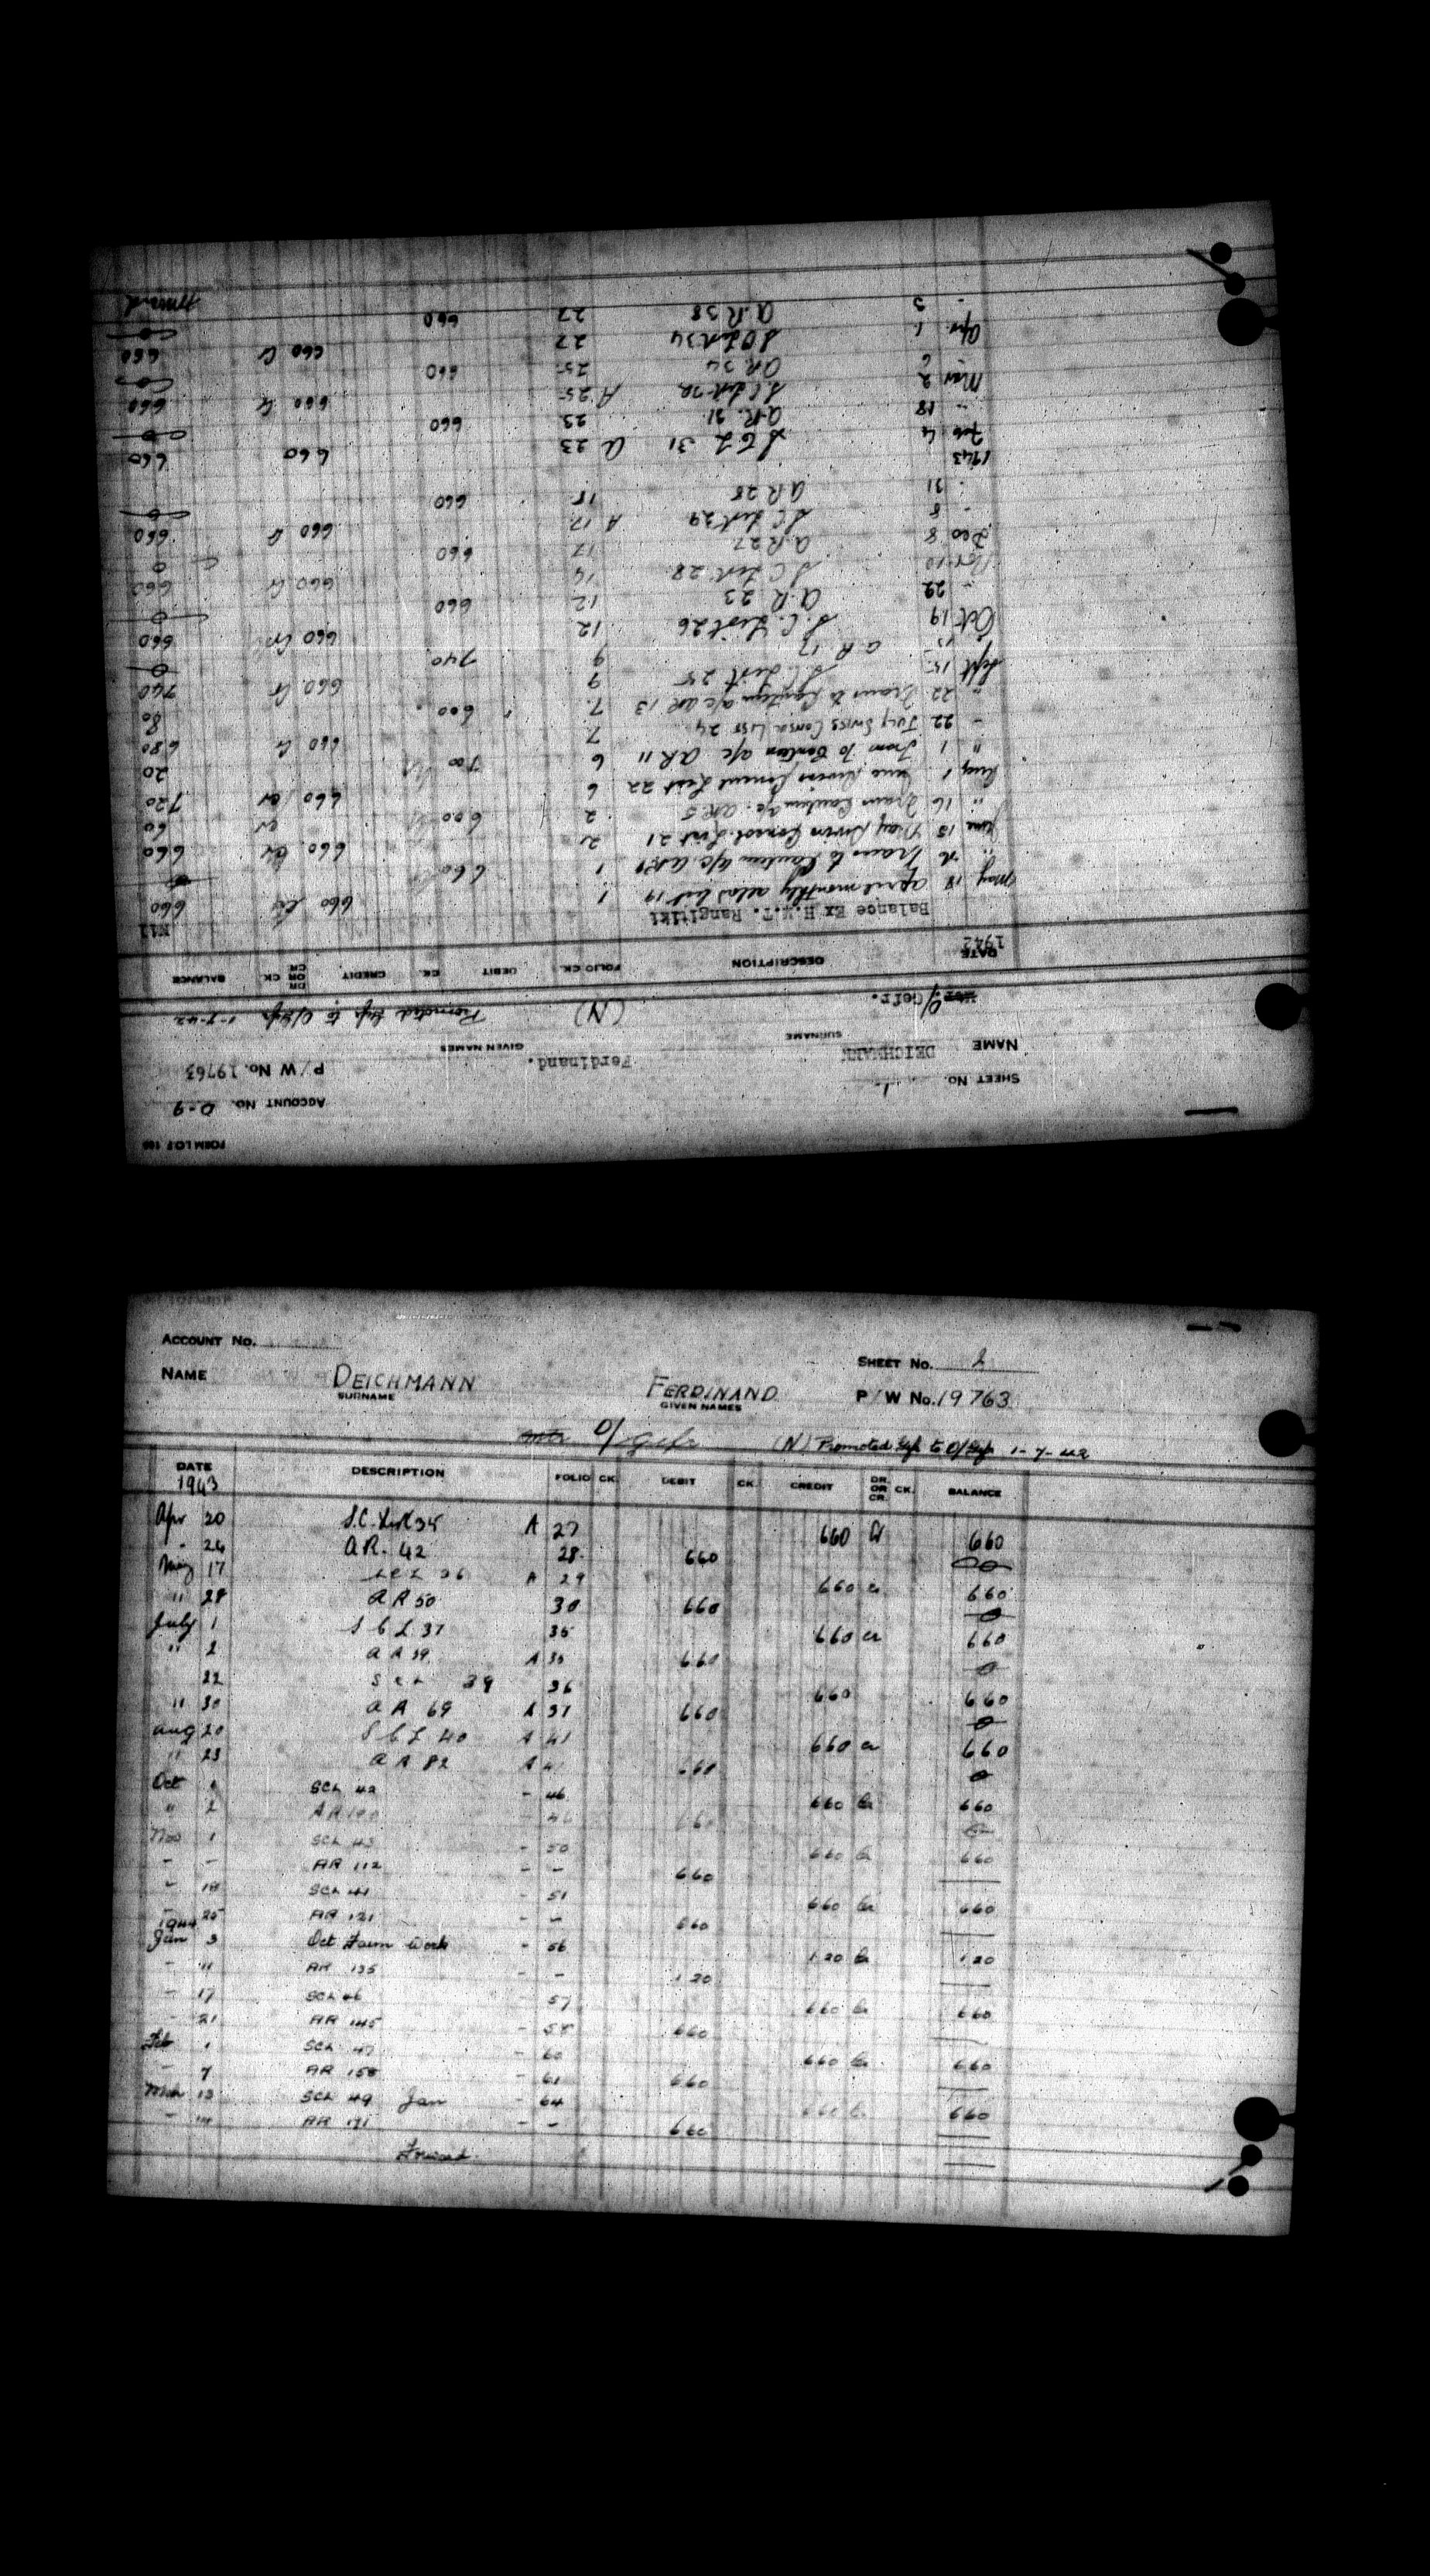 FORM I.O.F. 108
ACCOUNT NO. D-9
SHEET NO. 1.
P/W No. 19763
NAME DEICHMANN Ferdinand.
SURNAME GIVEN NAMES
O/Gefr. (N) Promoted Gefr to O/Gefr 1-7-42
DATE DESCRIPTION FOLIO CK. DEBIT CK. CREDIT DR OR CR CK. BALANCE
1942
Balance Ex H.M.T. Rangitiki Nil
May 18 April monthly relas List 19 1 660 Cr 660
Trans to Canteen a/c. AR1 1 660
June 15 May Swiss Consol. List 21 2 660 Cr 660
" 16 Trans Canteen a/c. AR 5 2 600 Cr 60
Aug 1 June Swiss Consul List 22 6 660 Cr 720
" 1 Trans To Canteen a/c AR 11 6 700 20
- 22 July Swiss Consul List 24 7 660 Cr 680
" 22 Trans to Canteen a/c AR 13 7 600 80
Sept 15 S.C. List 25 9 660 Cr 740
15 A R 17 9 740 0
Oct 19 S.C. List 26 12 660 Cr 660
- 29 A.R. 23 12 660 0
Nov 10 S C List 28 14 660 Cr 660
Dec 8 A R 27 17 660 0
- 8 S C List 29 A 17 660 Cr 660
31 A R 28 18 660 0
1943
Feb 4 S C L 31 A 23 660 660
- 18 A.R. 31 23 660 0
Mar 2 S C List 32 A 25 660 Cr 660
6 AR 34 25 660
Apr 1 S C List 34 27 660 Cr 660
- 3 A.R 38 27 660
Forward
ACCOUNT NO.
SHEET NO. 2
NAME DEICHMANN FERDINAND P/W No. 19763
SURNAME GIVEN NAMES
O/Gefr (N) Promoted Gefr to O/Gefr 1-7-42
DATE DESCRIPTION FOLIO CK. DEBIT CK. CREDIT DR. OR CR. CK. BALANCE
1943
Apr 20 S.C. List 35 A 27 660 Cr 660
- 26 A.R. 42 28 660
May 17 S C L 36 A 29 660 Cr 660
" 28 A R 50 30 660 0
July 1 S C L 37 35 660 Cr 660
" 2 A R 59 A 35 660 0
22 S C L 39 36 660 660
" 30 A R 69 A 37 660 0
Aug 20 S C L 40 A 41 660 Cr 660
" 23 A R 82 A 41 660 0
Oct 1 SCL 42 - 46 660 Cr 660
" 2 AR 100 - 46 660
Nov 1 SCL 43 - 50 660 Cr 660
- - AR 112 - - 660
- 18 SCL 44 - 51 660 Cr 660
- 25 AR 121 - - 660
1944
Jan 3 Oct Farm Work - 56 1 20 Cr 1 20
- 11 AR 135 - - 1 20
- 17 SCL 46 - 57 660 Cr 660
- 21 AR 145 - 58 660
Feb 1 SCL 47 - 60 660 Cr 660
- 7 AR 155 - 61 660
Mch 13 SCL 49 Jan - 64 660 Cr 660
- 14 AR 171 - - 660
Forward.